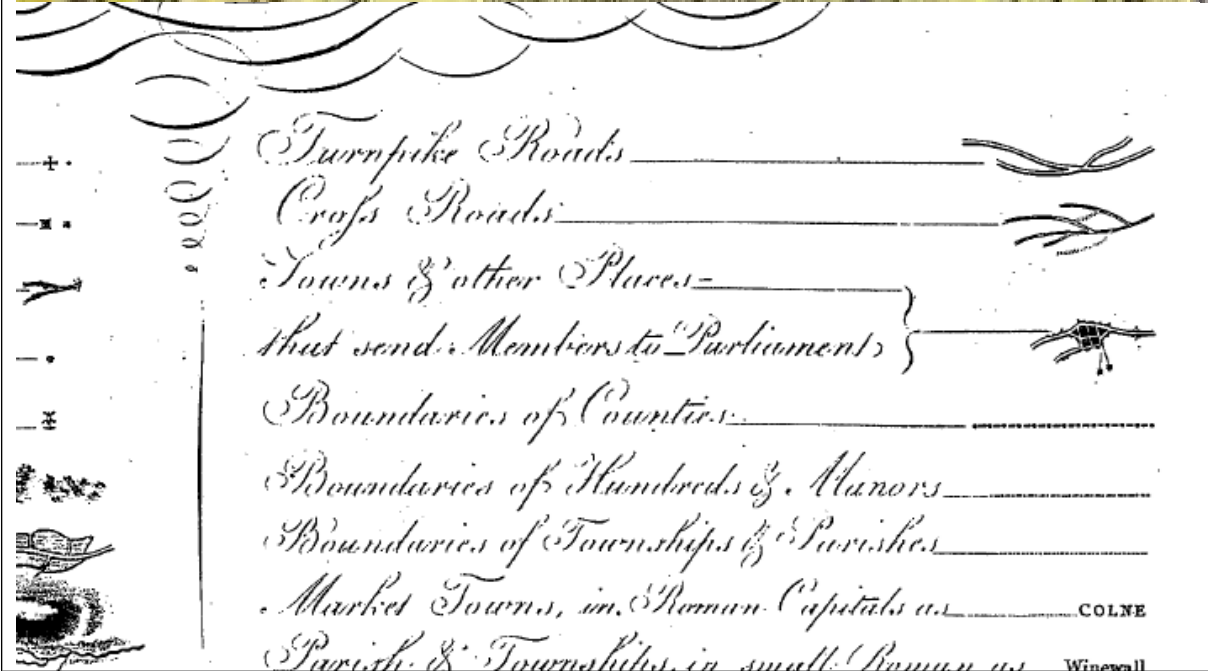 Turnpike Roads
Croſs Roads
Towns & other Places
that send Members to Parliament
Boundaries of Counties
Boundaries of Hundreds & Manors
Boundaries of Townships & Parishes
Market Towns, in Roman Capitals as COLNE
Parish & Townships in small Roman as Winewall